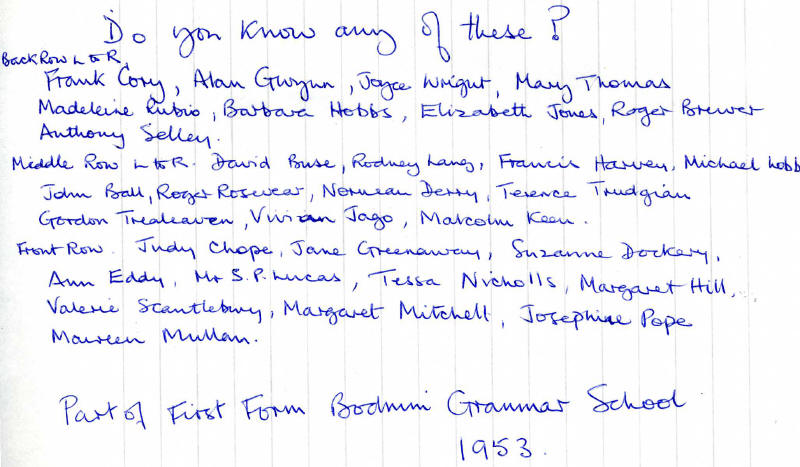 Do you know any of these?
Back Row L to R,
Frank Cory, Alan Gwynn, Joyce Wright, Mary Thomas
Madeleine Rubio, Barbara Hobbs, Elizabeth Jones, Roger Brewer
Anthony Selley.
Middle Row L to R. David Buse, Rodney Lang, Francis Harvey, Michael Lobb
John Ball, Roger Rosevear, Norman Derry, Terence Trudgian
Gordon Trealeaven, Vivian Jago, Malcolm Keen.
Front Row. Judy Chope, Jane Greenaway, Suzanne Dockery,
Ann Eddy, Mr S.P. Lucas, Tessa Nicholls, Margaret Hill,
Valerie Scantlebury, Margaret Mitchell, Josephine Pope
Maureen Mullan.
Part of First Form Bodmin Grammar School
1953.